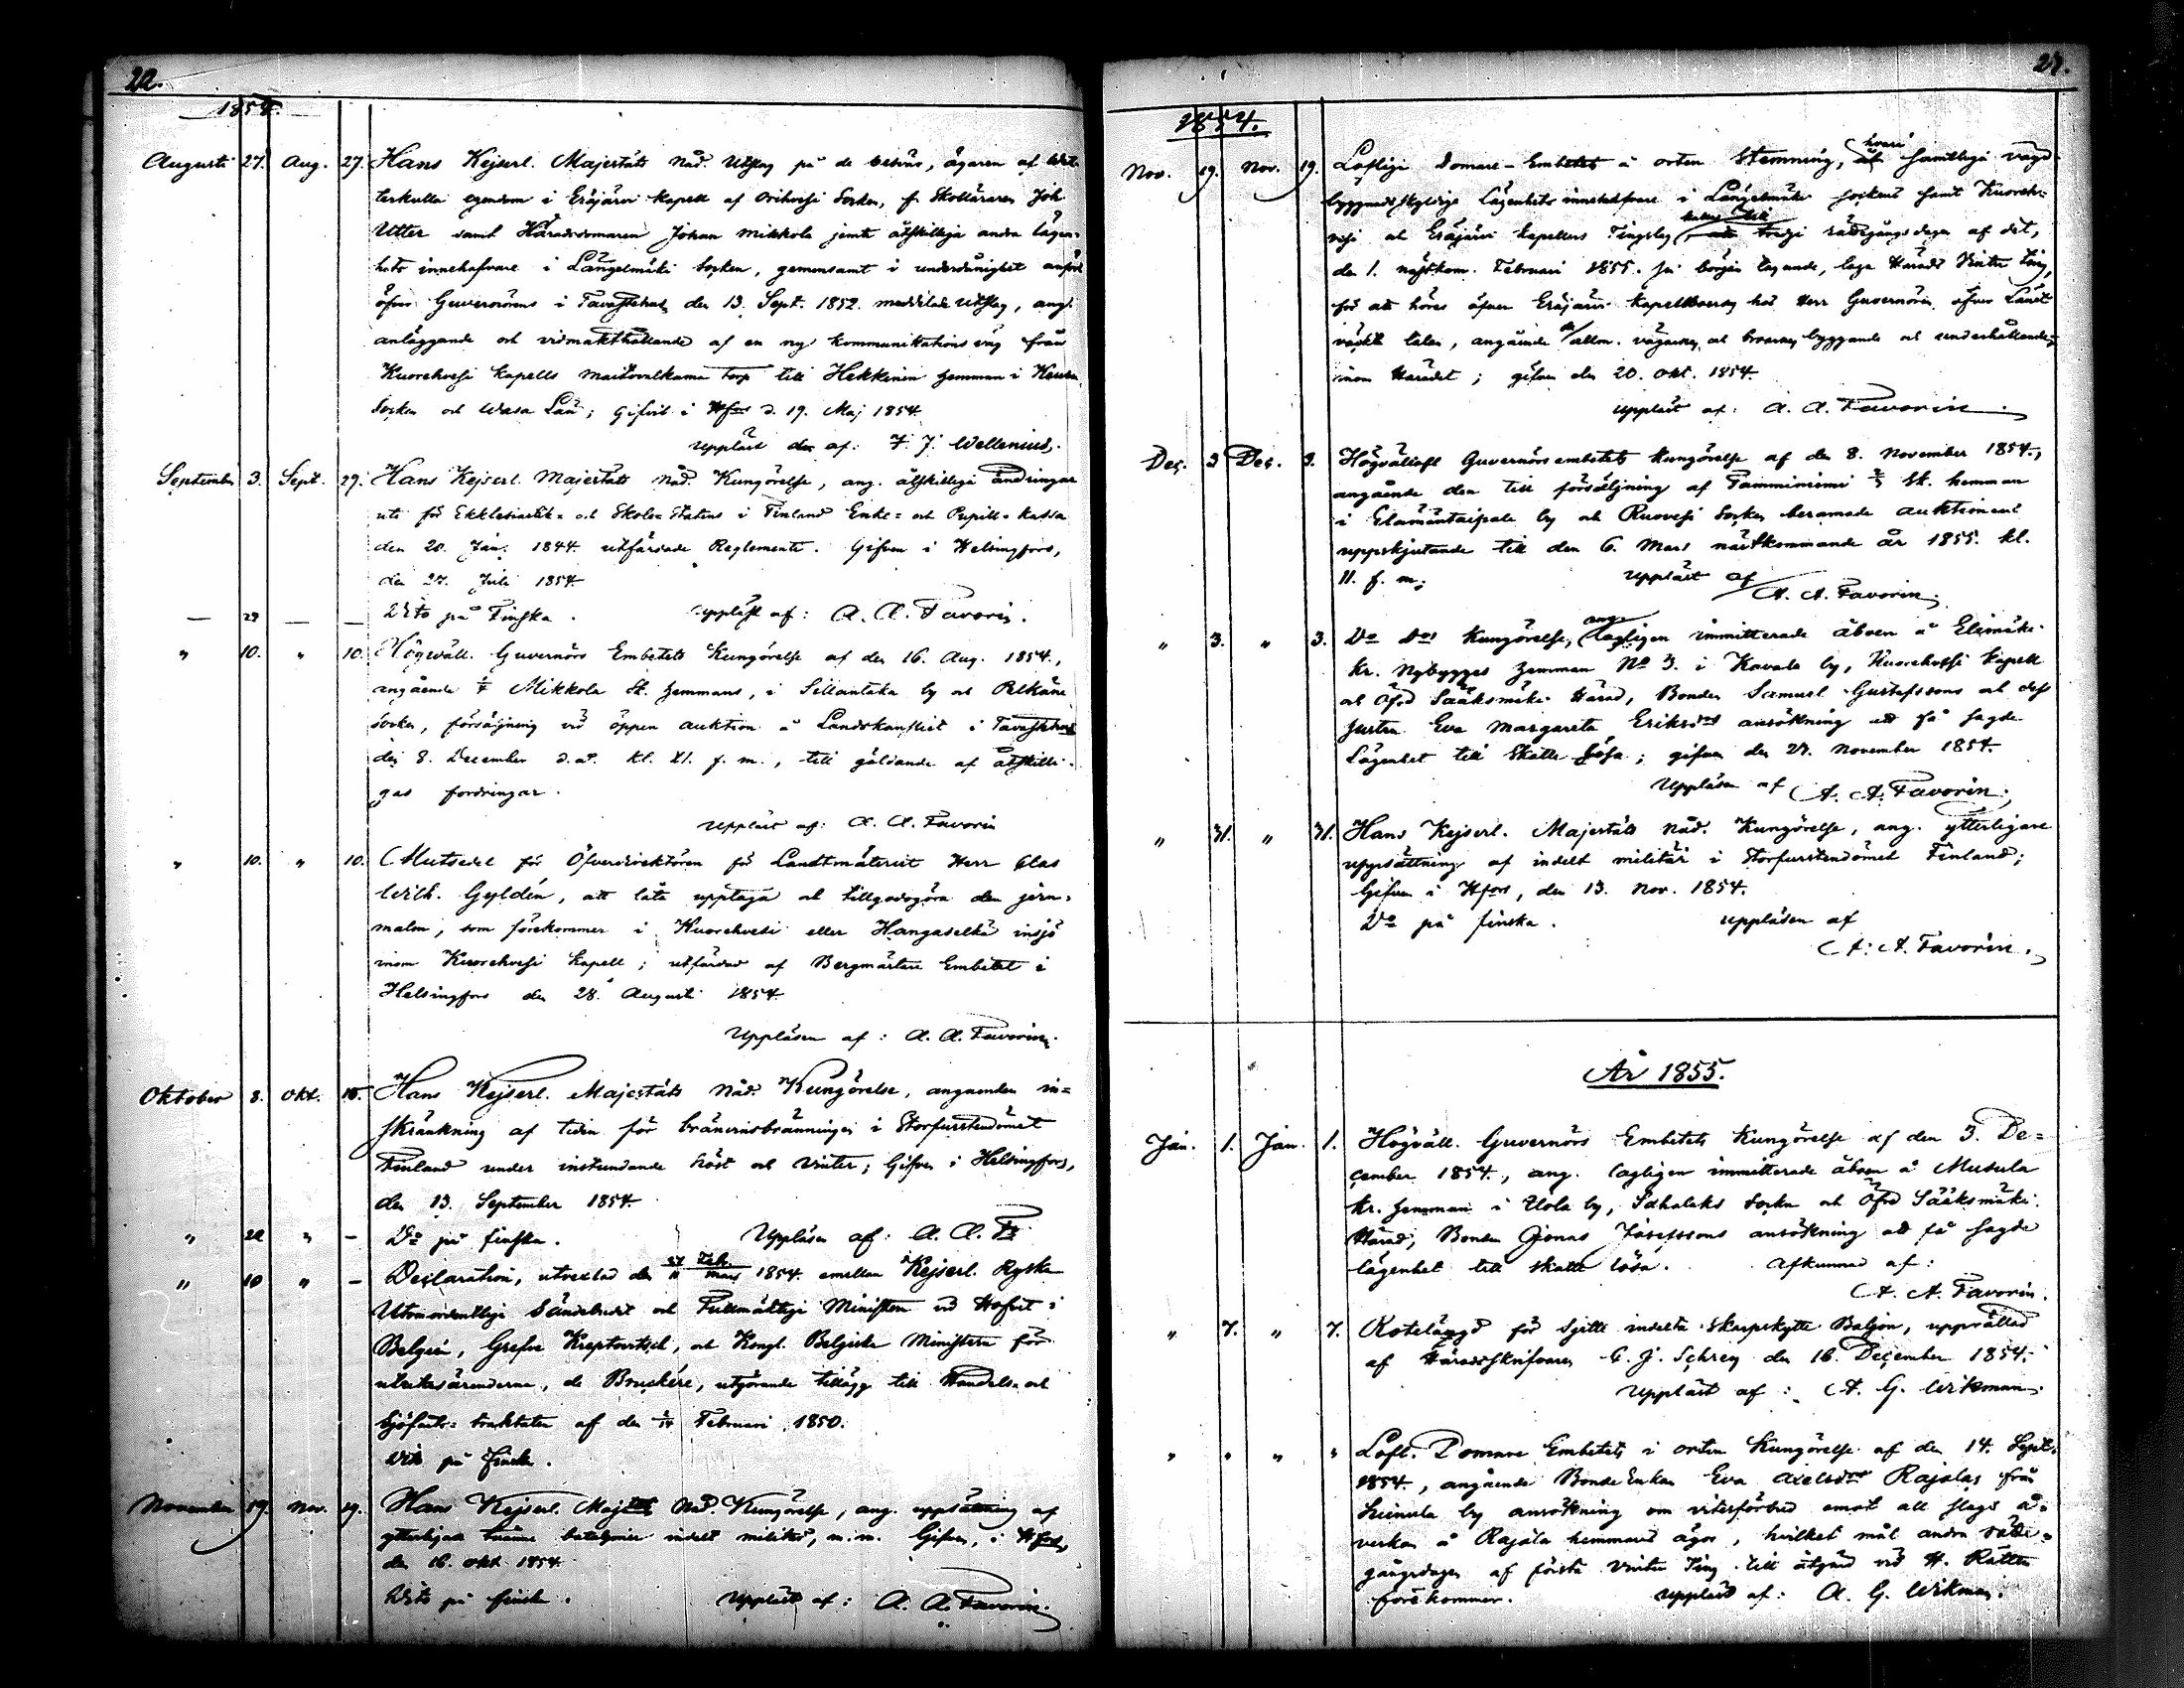 22.
1854.
Augusti 27. Aug. 27. Hans Kejserl. Majestäts Nåd. Utslag på de besvär, ägaren af
terkulla egendom i Eräjärvi kapell af Orihvesi Socken, f. Skolläraren Joh.
Utter samt Häradsdomaren Johan Mikkola jemte åtskilliga andra lägen-
hets innehafvare i Längelmäki Socken, gemensamt i underdånighet anfört
öfver Guvernörens i Tavastehus den 13. Sept. 1852. meddelade Utslag, ang.
anläggande och vidmakthållande af en ny kommunikations väg från
Kuorehvesi kapells Maitovalkama torp till Hekkinen hemman i
Socken och Wasa Län; Gifvit i Hfors d. 19. Maj 1854.
Uppläst af: F. J. Wellenius.
September 3. Sept. 29. Hans Kejserl. Majestäts Nåd. Kungörelse, ang. åtskilliga ändringar
uti för Ekklesiastik- och Skole-Statens i Finland Enke- och Pupill-Kassa
den 20. Jan. 1844. utfärdade Reglemente. Gifven i Helsingfors,
den 27. Juli 1854.
— 29 — — Dito på Finska. Uppläst af: A. A. Favorin.
" 10. " 10. Högväll. Guvernörs Embetets Kungörelse af den 16. Aug. 1854.,
angående Mikkola Sk. hemmans, i Sillantaka by och Pelkäne
Socken, försäljning vid öppen auktion å Landskansliet i Tavastehus
den 8. December d. å. kl. XI. f. m., till gäldande af åtskilli-
gas fordringar.
Uppläst af: A. A. Favorin
" 10. " 10. Mutsedel för Öfverdirektören för Landtmäteriet Herr Clas
Wilh. Gyldén, att låta upptaga och tillgodogöra den jern-
malm, som förekommer i Kuorehvesi eller Hangaselkä insjö
inom Kuorehvesi kapell; utfärdad af Bergmästare Embetet i
Helsingfors den 28. Augusti 1854.
Uppläsen af: A. A. Favorin.
Oktober 8. Okt. 15. Hans Kejserl. Majestäts Nåd. Kungörelse, angaenden in-
skränkning af tiden för bränvinsbränningen i Storfurstendömet
Finland under instundande höst och vinter; Gifven i Helsingfors,
den 13. September 1854.
" 22 " — Do på finska. Uppläsen af: A. A. F.
" 10 " — Declaration, utvexlad den Feb. Mars 1854. emellan Kejserl. Ryska
Utomordentliga Sändebudet och Fullmäktige Ministern vid Hofvet i
Belgien, Grefve Kreptovitsch, och Kongl. Belgiska Ministern för
utrikesärenderne, de Brouckère, utgörande tillägg till Handels- och
Sjöfarts-traktaten af den 2/14 Februari 1850.
Dito på finska.
November 19. Nov. 19. Hans Kejserl. Majestäts Nåd. Kungörelse, ang. uppsättning af
ytterligare tvänne bataljoner indelt militär, m. m. Gifven, i Hfors,
den 16. Okt. 1854.
Dito på finska. Uppläst af: A. A. Favorin.
1854.
Nov. 19. Nov. 19. Lofliga Domare-Embetets å orten Stemning, hvari samtliga väg-
byggnadsskyldige Lägenhets innehafvare i Längelmäki sockens samt Kuoreh-
vesi och Eräjärvi kapellers Tingslag tredje rättegångsdagen af det,
den 1. nästkom. Februari 1855. sin början tagande, laga Härads Vinter Ting,
för att höras öfver Eräjärvi kapellboers hos Herr Guvernören öfver Länet
väckta talan, angående allm. vägarnes och broarnes byggande och underhållande
inom Häradet; gifven den 20. Okt. 1854.
Uppläst af: A. A. Favorin.
Dec. 3 Dec. 3. Högvälloft Guvernörs embetets Kungörelse af den 8. November 1854.,
angående den till försäljning af Tamminiemi Sk. hemman
i Elämäntaipale by och Ruovesi Socken beramade auktionens
uppskjutande till den 6. Mars nästkommande år 1855. kl.
11. f. m; Uppläst af
A. A. Favorin.
" 3. " 3. Do Dos Kungörelse, ang. lagligen immitterade åboen å Elimäki
Kr. Nybygges hemman No 3. i Kavala by, Kuorehvesi kapell
och Öfvd Sääksmäki Härad, Bonden Samuel Gustafssons och dess
hustru Eva Margareta Eriksdrs ansökning att få sagde
Lägenhet till Skatte lösa; gifven den 27. November 1854.
Uppläsen af A. A. Favorin.
" 31. " 31. Hans Kejserl. Majestäts Nåd. Kungörelse, ang. ytterligare
uppsättning af indelt militär i Storfurstendömet Finland;
Gifven i Hfors, den 13. Nov. 1854.
Do på finska. Uppläsen af
A. A. Favorin.
År 1855.
Jan. 1. Jan. 1. Högväll. Guvernörs Embetets Kungörelse af den 3. De-
cember 1854., ang. lagligen immitterade åboen å Musula
Kr. hemman i Uola by, Sahalaks Socken och Öfvd Sääksmäki
Härad, Bonden Jonas Josefssons ansökning att få sagde
lägenhet till skatte lösa. Afkunnad af:
A. A. Favorin.
" 7. " 7. Rotelängd för Sjette indelta Skarpskytte Baljon, upprättad
af Häradsskrifvaren C. J. Schrey den 16. December 1854.
Uppläst af: A. G. Wikman.
" " " " Lofl. Domare Embetets i orten Kungörelse af den 14. Sept.
1854., angående Bonde Enkan Eva Axelsdr Rajalas från
by ansökning om vitesförbud emot all slags å-
verkan å Rajala hemmans ägor, hvilket mål andra rätte-
gångsdagen af första Vinter Ting till åtgärd vid H. Rätten
förekommer. Uppläst af: A. G. Wikman.